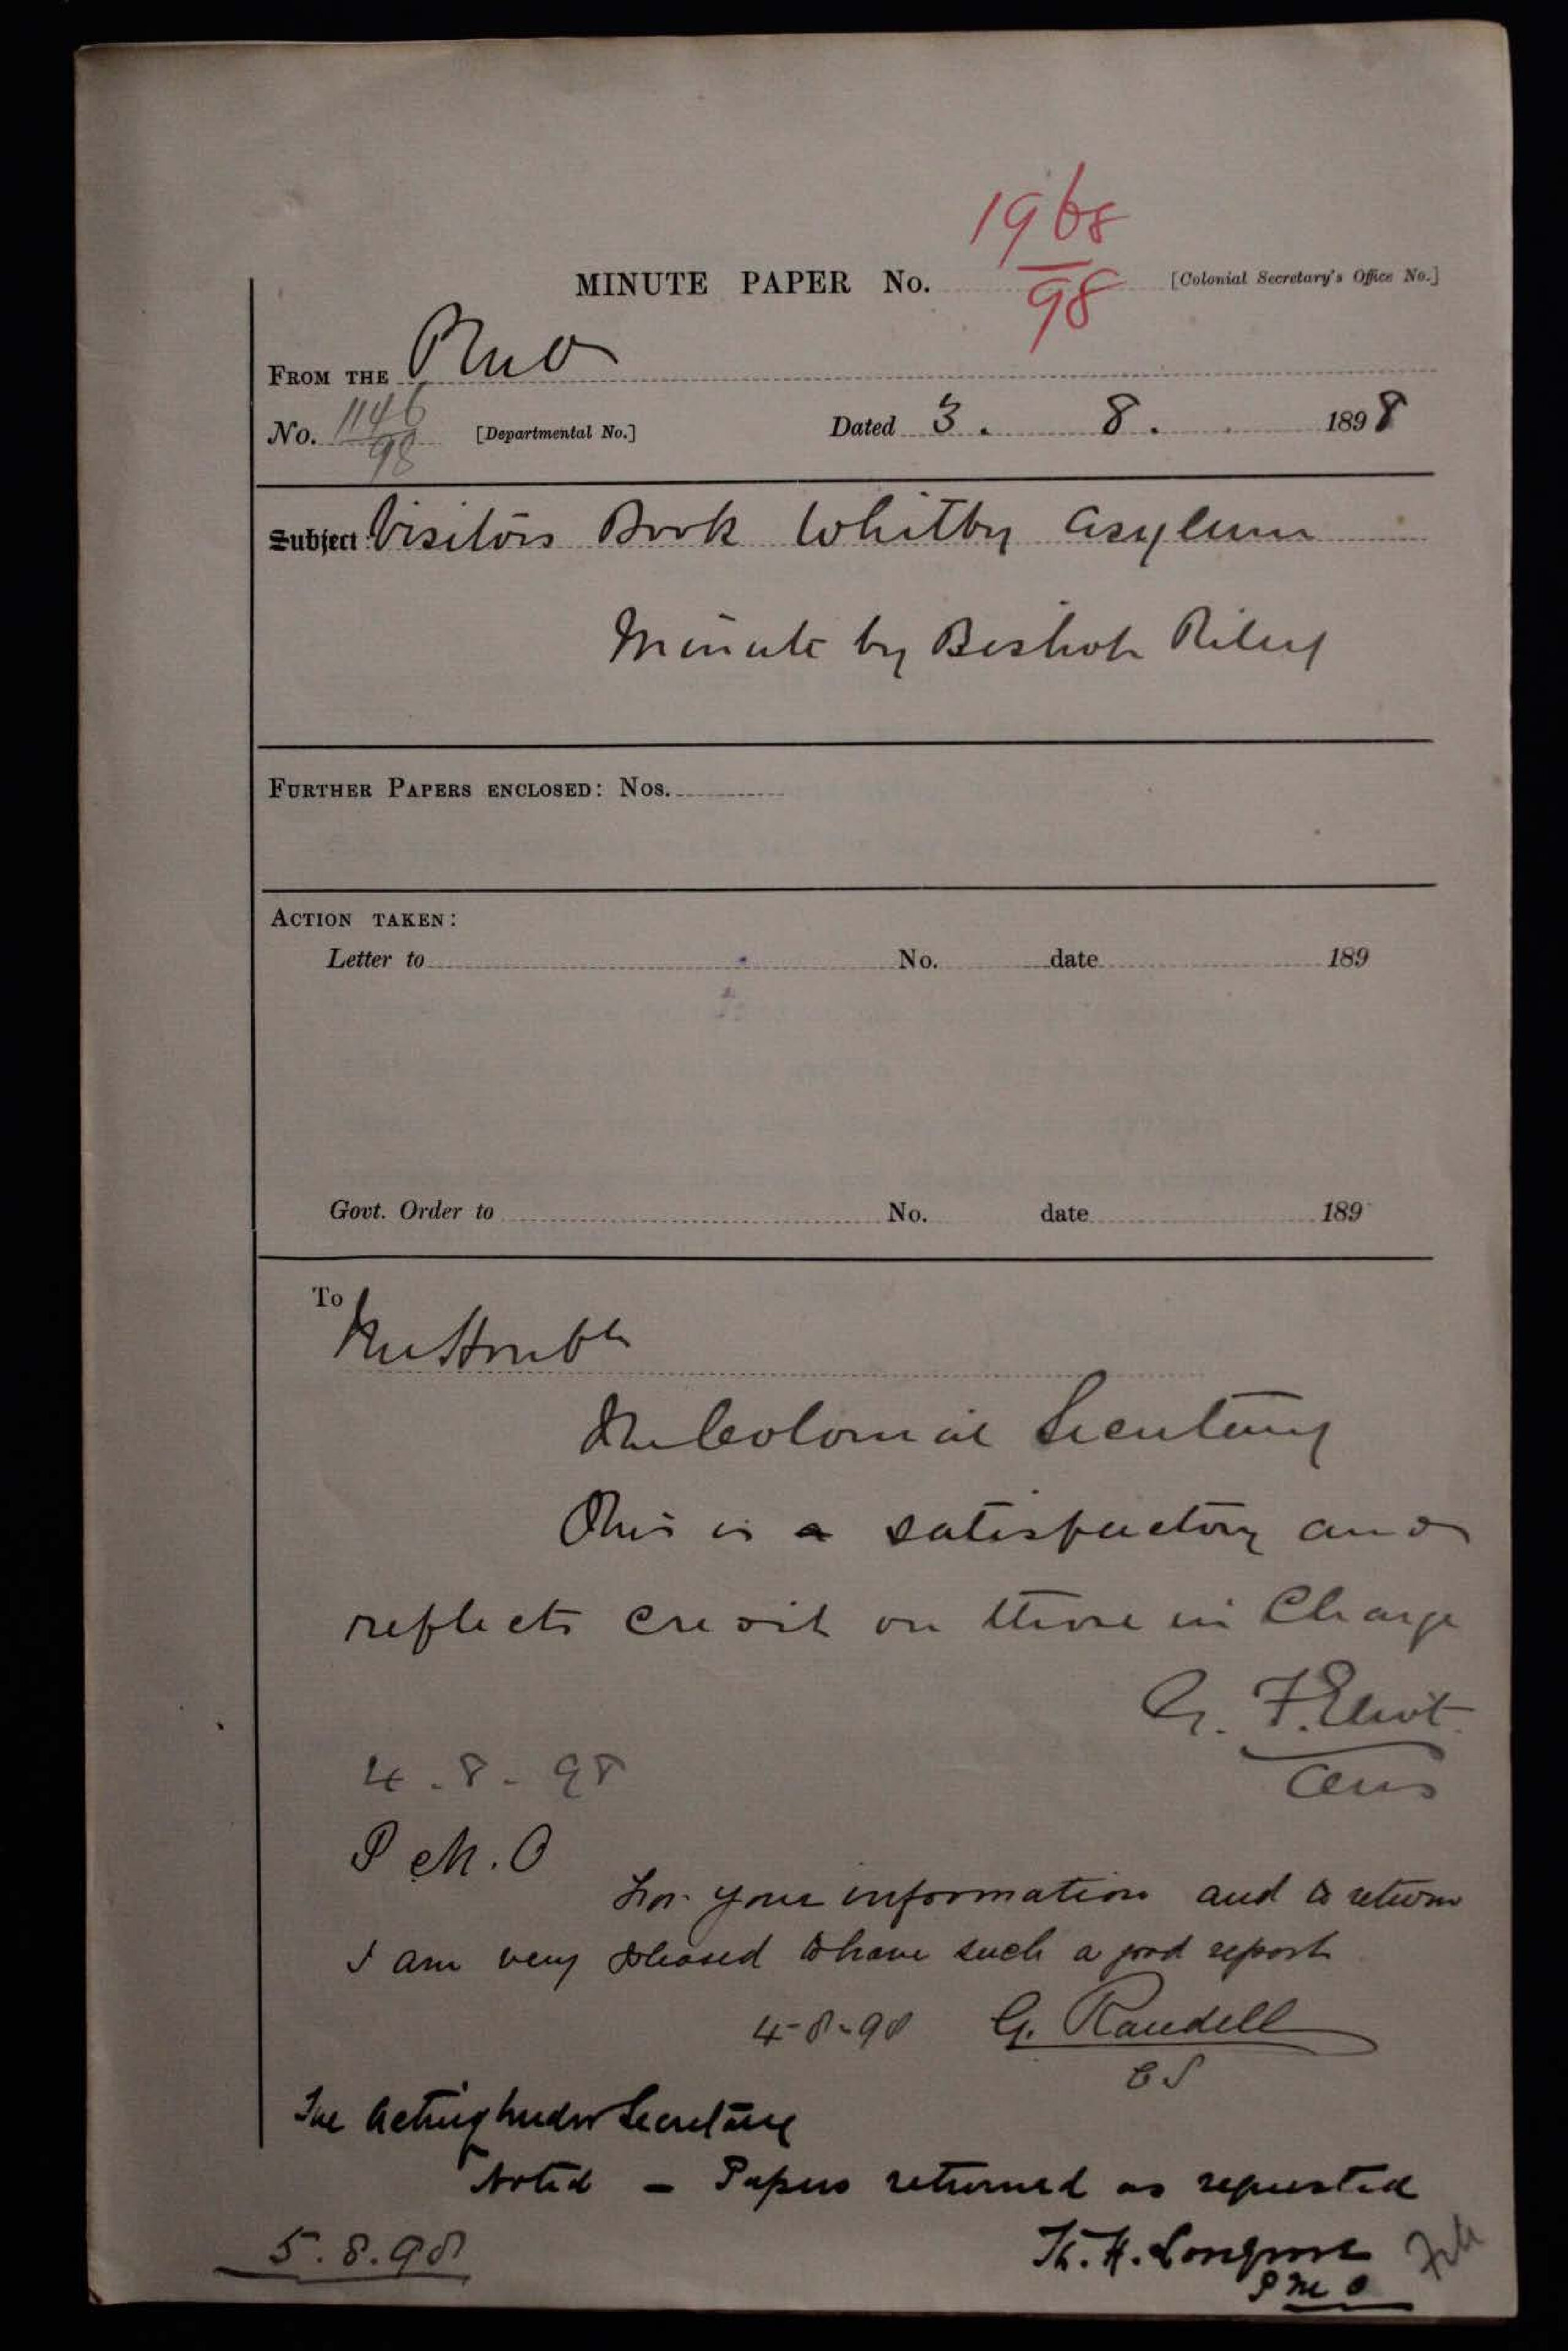 1968
98
MINUTE PAPER No. [Colonial Secretary's Office No.]
FROM THE PMO
No. 1146
98 [Departmental No.] Dated 3. 8. 1898
Subject Visitors Book Whitby Asylum
Minute by Bishop Riley
FURTHER PAPERS ENCLOSED: Nos.
ACTION TAKEN:
Letter to No. date 189
Govt. Order to No. date 189
To
The Honble
The Colonial Secretary
This is a satisfactory and
reflects credit on those in Charge
G. F. Eliot
AUS
4.8.98
P.M.O
For your information and to return
I am very pleased to have such a good report
4-8-98 G. Randell
CS
The Acting Under Secretary
Noted - Papers returned as requested
5.8.98 Th. H. Lovegrove File
PMO